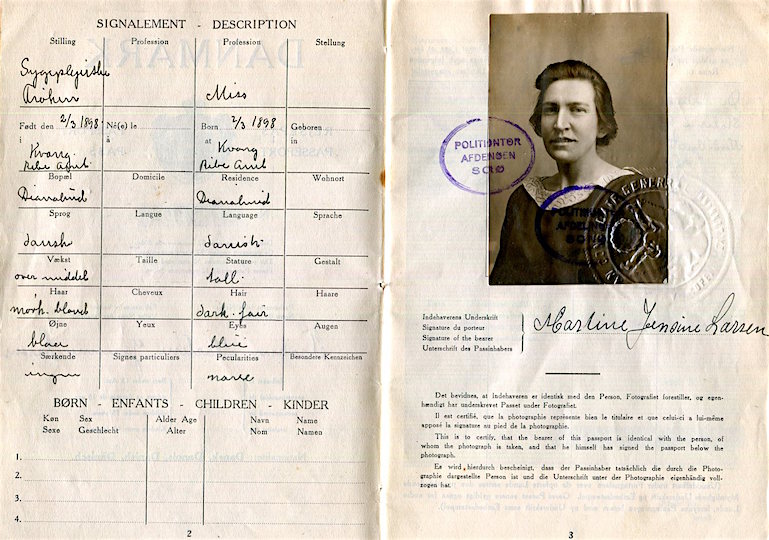 SIGNALEMENT - DESCRIPTION
Stilling Profession Profession Stellung
Sygeplejerske
Frøken Miss
Født den 2/3 1898 Né(e) le Born 2/3 1898 Geboren
i à at in
Kvong Kvong
Ribe Amt. Ribe Amt
Bopæl Domicile Residence Wohnort
Dianalund Dianalund
Sprog Langue Language Sprache
dansk danish.
Vækst Taille Stature Gestalt
over middel tall.
Haar Cheveux Hair Haare
mørk. blond dark. fair
Øjne Yeux Eyes Augen
blaa blue
Særkende Signes particuliers Pecularities Besondere Kennzeichen
ingen none
BØRN - ENFANTS - CHILDREN - KINDER
Køn Sex Alder Age Navn Name
Sexe Geschlecht Alter Nom Namen
1.
2.
3.
4.
2
POLITIONTØR
AFDENGEN
SØRØ
Indehaverens Underskrift
Signature du porteur
Signature of the bearer
Unterschrift des Passinhabers
Martine Jensine Larsen
Det bevidnes, at Indehaveren er identisk med den Person, Fotografiet forestiller, og egen-
hændigt har underskrevet Passet under Fotografiet.
Il est certifié, que la photographie représente bien le titulaire et que celui-ci a lui-même
apposé la signature au pied de la photographie.
This is to certify, that the bearer of this passport is identical with the person, of
whom the photograph is taken, and that he himself has signed the passport below the
photograph.
Es wird hierdurch bescheinigt, dass der Passinhaber tatsächlich die durch die Photo-
graphie dargestellte Person ist und die Unterschrift unter der Photographie eigenhändig voll-
zogen hat.
3